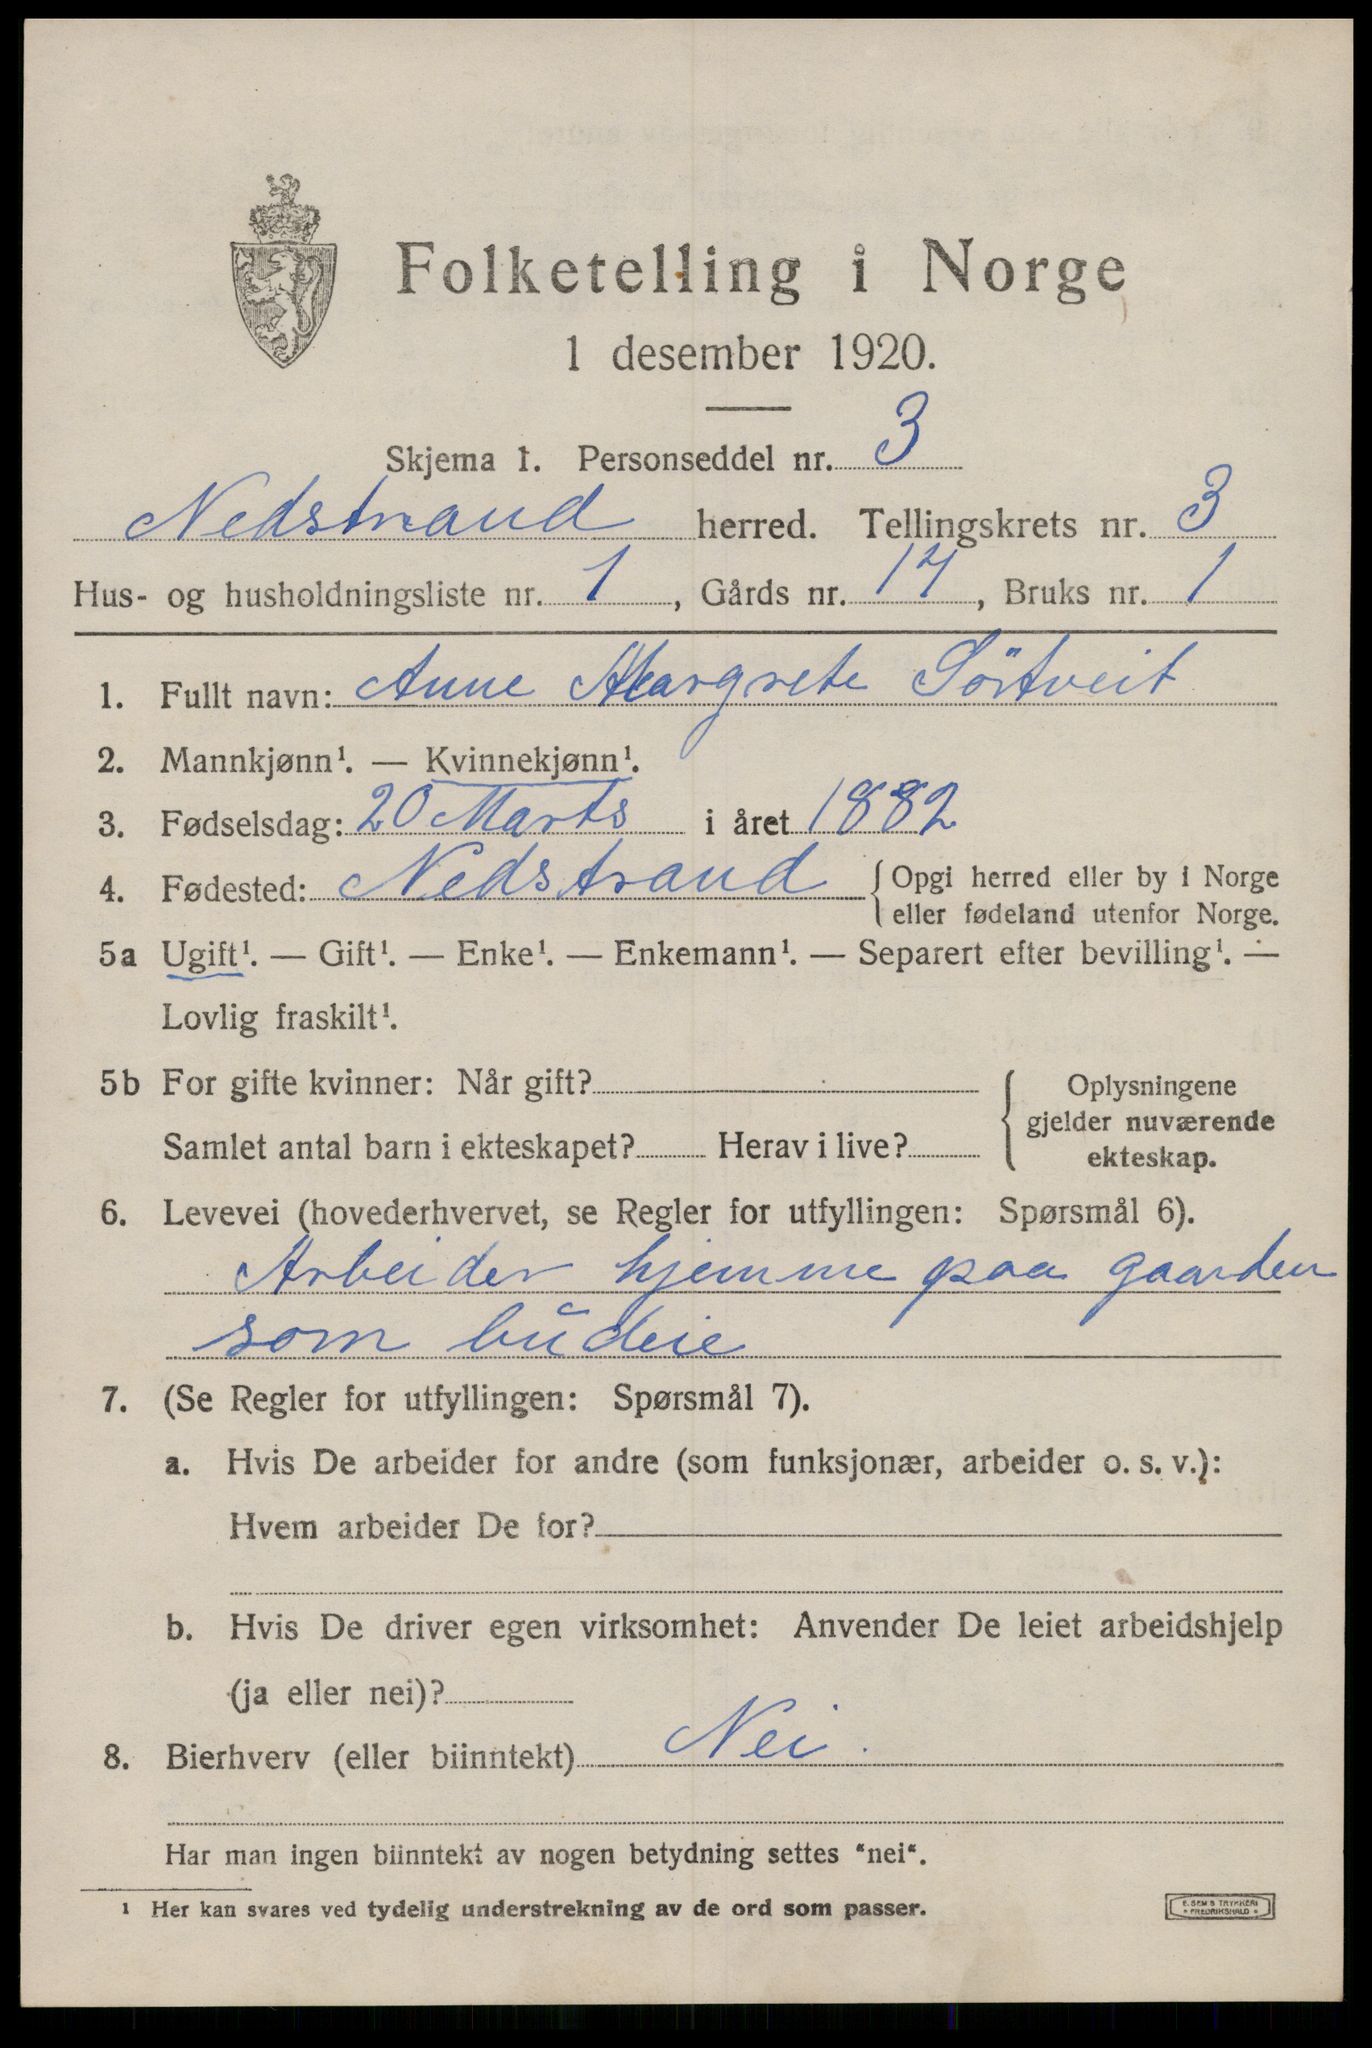 Folketelling i Norge
1 desember 1920.
Skjema 1. Personseddel nr. 3
Nedstrand herred. Tellingskrets nr. 3
Hus- og husholdningsliste nr. 1, Gårds nr. 14, Bruks nr. 1
1. Fullt navn: Anne Margrete Sörtveit
2. Mannkjønn¹. — Kvinnekjønn¹.
3. Fødselsdag: 20 Marts i året 1882
4. Fødested: Nedstrand { Opgi herred eller by i Norge
eller fødeland utenfor Norge.
5a Ugift¹. — Gift¹. — Enke¹. — Enkemann¹. — Separert efter bevilling¹. —
Lovlig fraskilt¹.
5b For gifte kvinner: Når gift?
Samlet antal barn i ekteskapet? Herav i live?
{ Oplysningene
gjelder nuværende
ekteskap.
6. Levevei (hovederhvervet, se Regler for utfyllingen: Spørsmål 6).
Arbeider hjemme paa gaarden
som budeie
7. (Se Regler for utfyllingen: Spørsmål 7).
a. Hvis De arbeider for andre (som funksjonær, arbeider o. s. v.):
Hvem arbeider De for?
b. Hvis De driver egen virksomhet: Anvender De leiet arbeidshjelp
(ja eller nei)?
8. Bierhverv (eller biinntekt) Nei.
Har man ingen biinntekt av nogen betydning settes "nei".
¹ Her kan svares ved tydelig understrekning av de ord som passer.
E. SEM'S TRYKKERI
• FREDRIKSHALD •